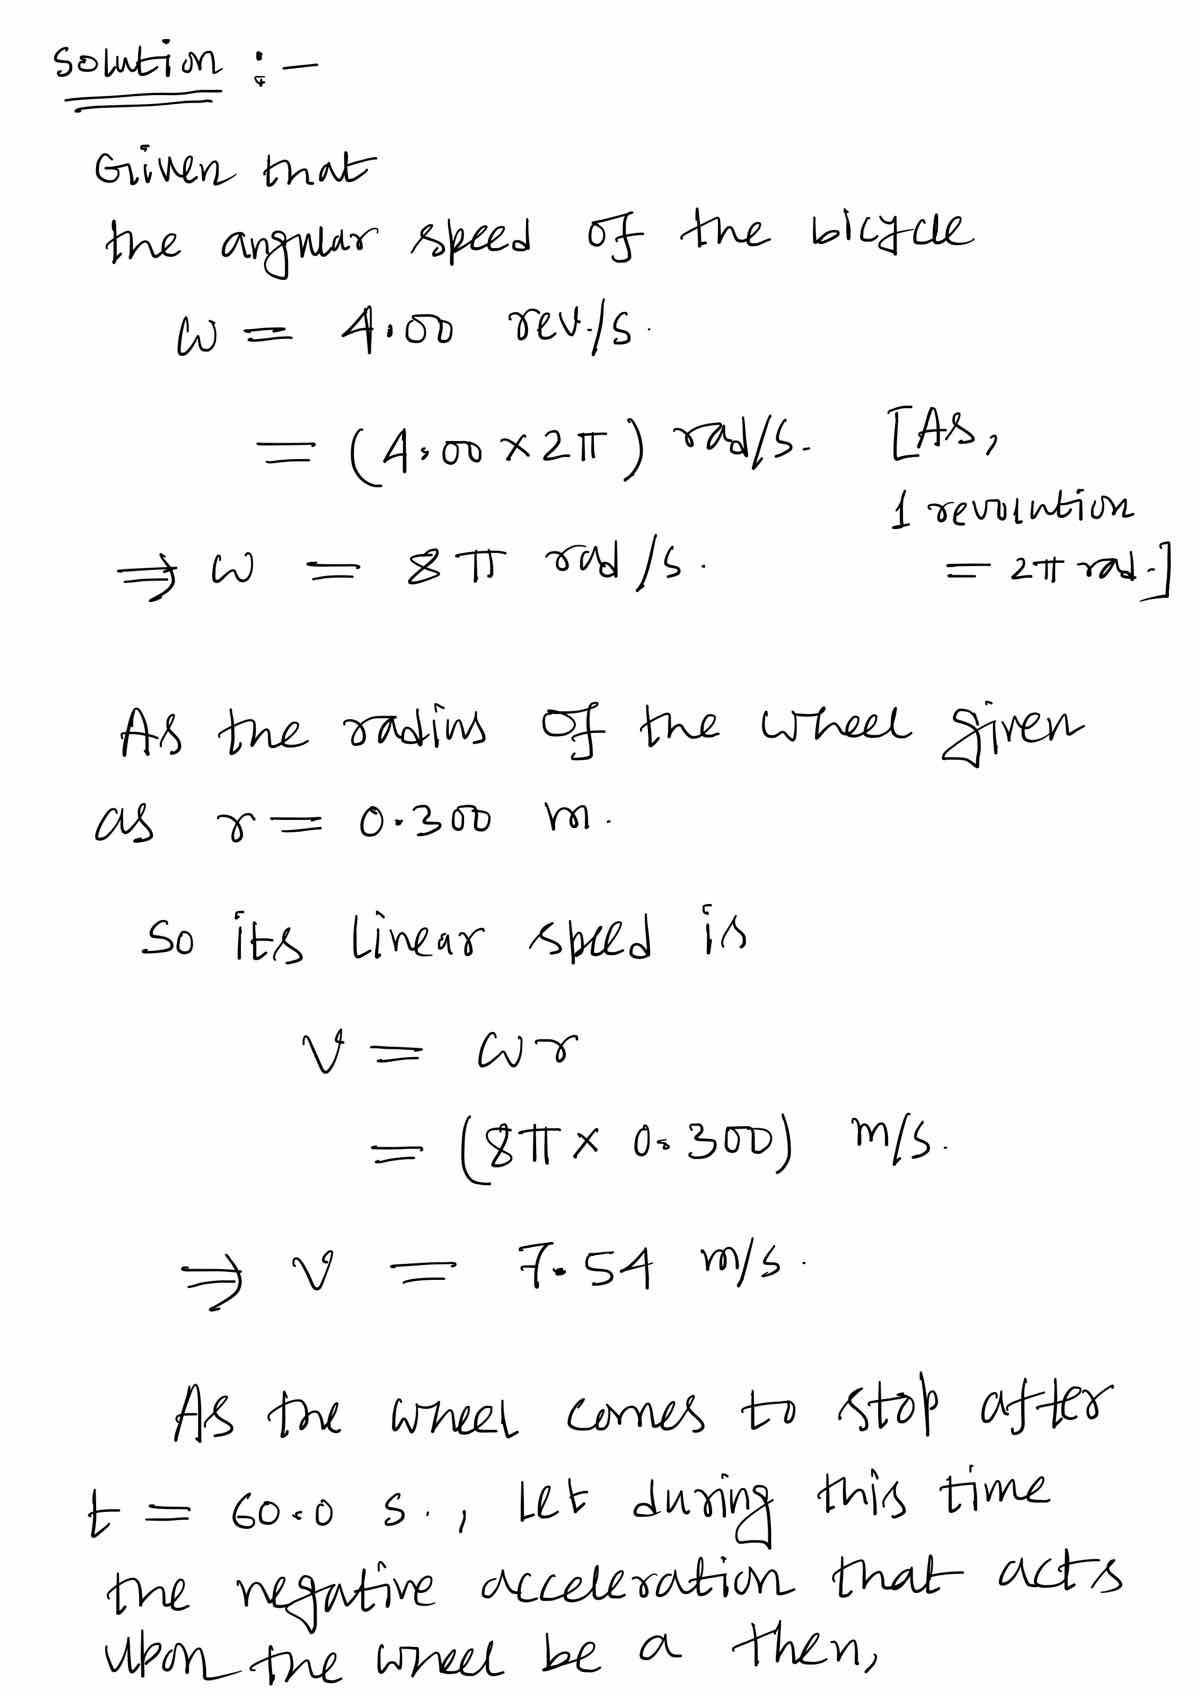 Solution :-
Given that
the angular speed of the bicycle
ω = 4.00 rev./s.
= (4.00 × 2π) rad/s. [As,
1 revolution
⇒ ω = 8π rad/s. = 2π rad.]
As the radius of the wheel given
as r = 0.300 m.
So its linear speed is
v = ωr
= (8π × 0.300) m/s.
⇒ v = 7.54 m/s.
As the wheel comes to stop after
t = 60.0 s., Let during this time
the negative acceleration that acts
upon the wheel be a then,